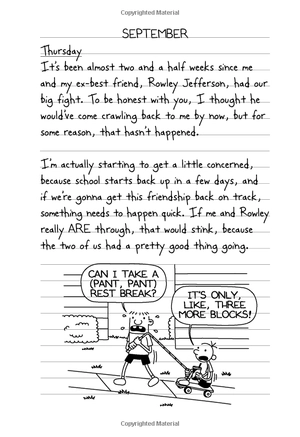 Copyrighted Material
SEPTEMBER
Thursday
It's been almost two and a half weeks since me
and my ex-best friend, Rowley Jefferson, had our
big fight. To be honest with you, I thought he
would've come crawling back to me by now, but for
some reason, that hasn't happened.
I'm actually starting to get a little concerned,
because school starts back up in a few days, and
if we're gonna get this friendship back on track,
something needs to happen quick. If me and Rowley
really ARE through, that would stink, because
the two of us had a pretty good thing going.
CAN I TAKE A
(PANT, PANT)
REST BREAK?
IT'S ONLY,
LIKE, THREE
MORE BLOCKS!
Copyrighted Material